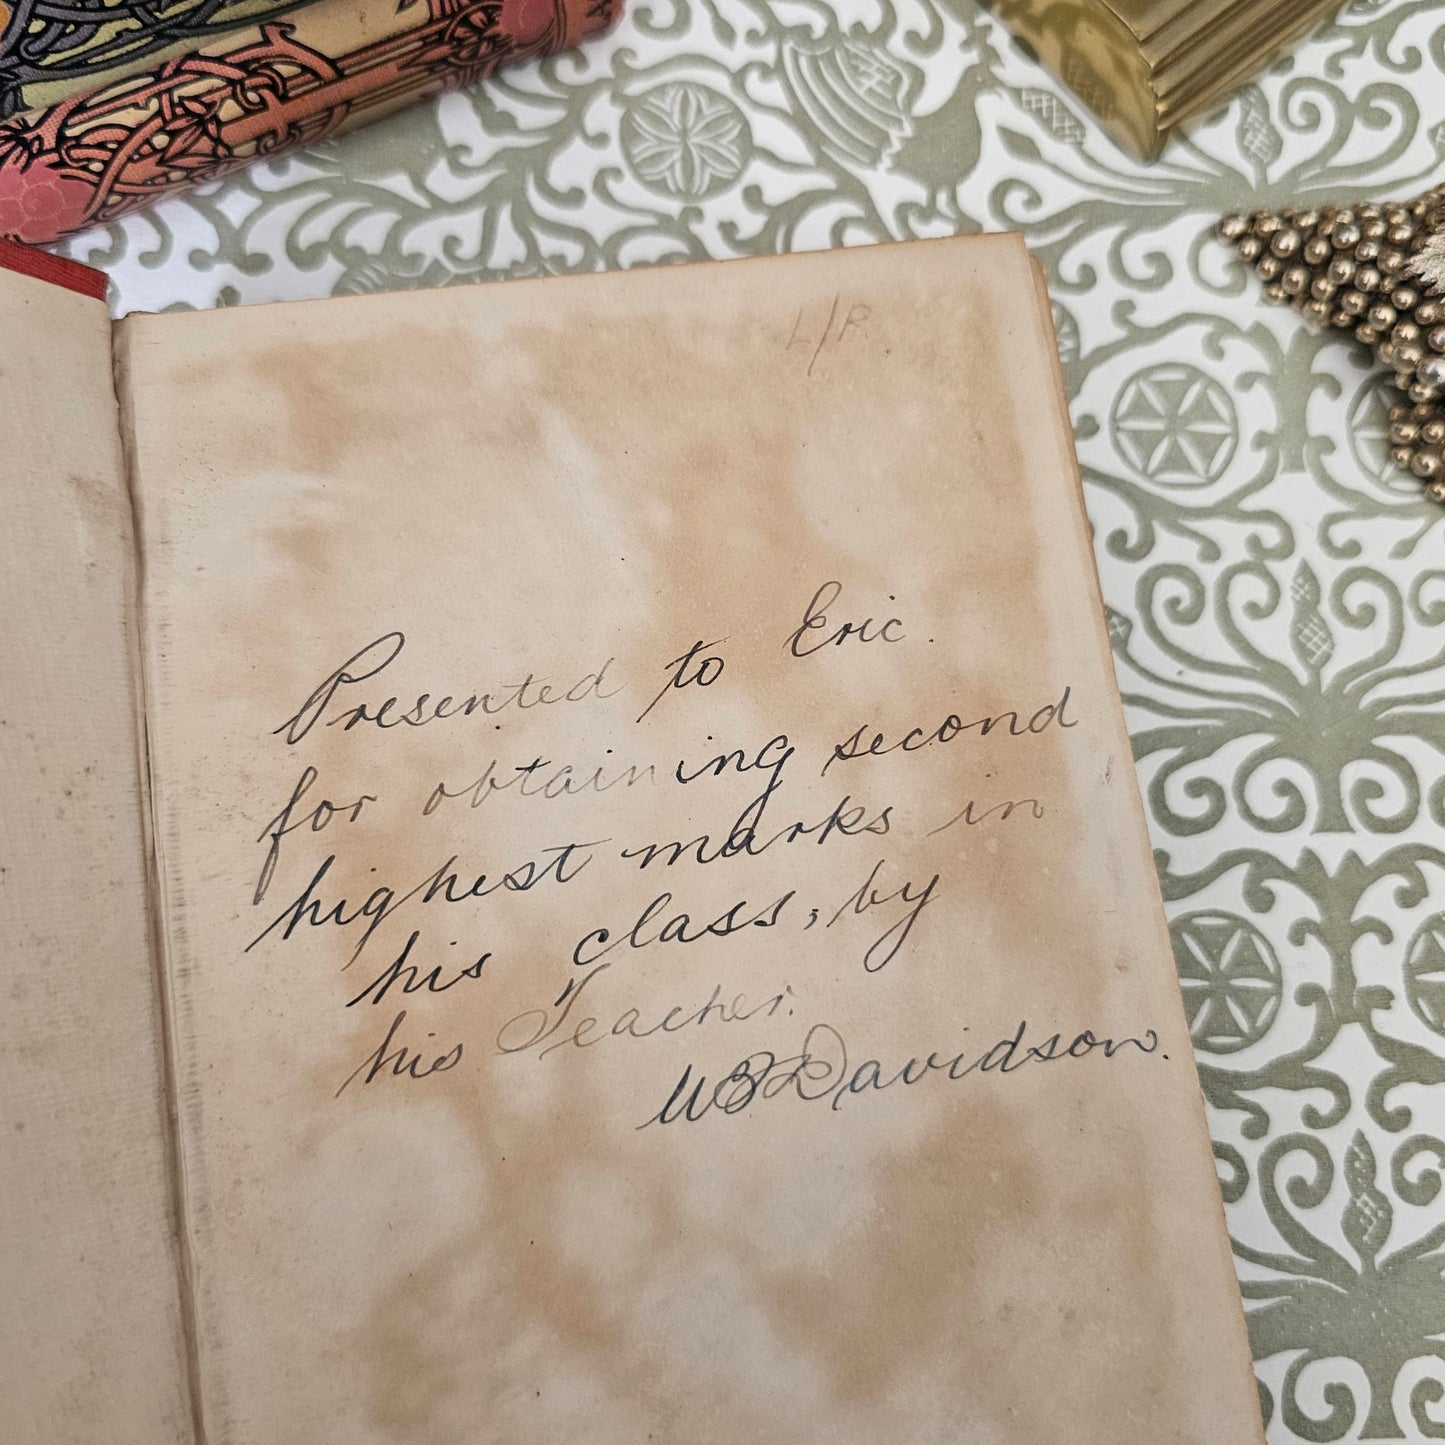 L/R
Presented to Eric.
for obtaining second
highest marks in
his class, by
his Teacher.
WB Davidson.